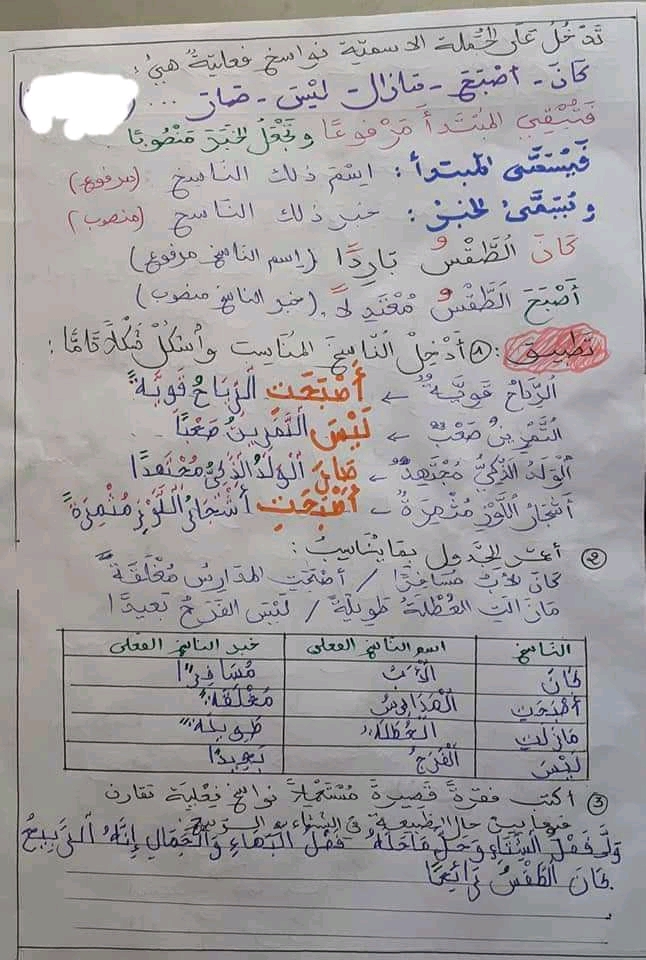 تَدْخُلُ عَلَى الجُمْلة الاسميّة نواسخ فعليّةٌ هي:
كَانَ - أصْبَحَ - مازال ليْسَ - صَارَ ...
فَتُبْقِي المُبْتَدأَ مَرْفوعًا وتَجْعَلُ الخَبَرَ مَنْصُوبًا
فَيُسَمَّى المبتدأ: اسْم ذلك النّاسخ (مرفوع)
وَيُسَمَّى الخبرُ: خبر ذلك النّاسخ (منصوب)
كَانَ الطَّقْسُ بَارِدًا (اسم الناسخ مرفوع)
أَصْبَحَ الطَّقْسُ مُعْتَدِلاً. (خبر الناسخ منصوب)
تطبيق: ① أدْخِلْ النَّاسخَ المُنَاسِبَ وأشكُلْ شَكْلاً تَامًّا:
الرِّيَاحُ قَوِيَّةٌ ← أَصْبَحَتِ الرِّيَاحُ قَوِيَّةً
التَّمْرِينُ صَعْبٌ ← لَيْسَ التَّمْرِينُ صَعْبًا
الْوَلَدُ الذَّكِيُّ مُجْتَهِدٌ ← صَارَ الْوَلَدُ الذَّكِيُّ مُجْتَهِدًا
أَشْجَارُ اللَّوْزِ مُثْمِرَةٌ ← أَصْبَحَتِ أَشْجَارُ اللَّوْزِ مُثْمِرَةً
② أعمر الجَدْول بِمَا يُنَاسِبُ:
كَانَ الأبُ مُسَافِرًا / أَصْبَحَتِ المَدَارِسُ مُغْلَقَةً
مَازَالَتِ العُطْلَةُ طَوِيلَةً / لَيْسَ الفَرَجُ بَعِيدًا
النّاسخ اسم النّاسخ الفعلي خبر الناسخ الفعلي
كَانَ الْأَبُ مُسَافِرًا
أَصْبَحَتِ الْمَدَارِسُ مُغْلَقَةً
مَازلت العُطْلَةُ طَوِيلَةً
لَيْسَ الْفَرَجُ بَعِيدًا
③ اكتب فقرةً قَصِيرةً مُسْتَعْمِلاً نواسخ فِعْلِيّة تقارن
فيها بين حال الطبيعة في الشتاء و الرّبيع
وَلَّى فَصْلُ الشِّتَاءِ وَحَلَّ مَحَلَّهُ فَصْلُ الْبَهَاءِ وَالْجَمَالِ إِنَّهُ الرَّبِيعُ
كَانَ الطَّقْسُ رَائِعًا